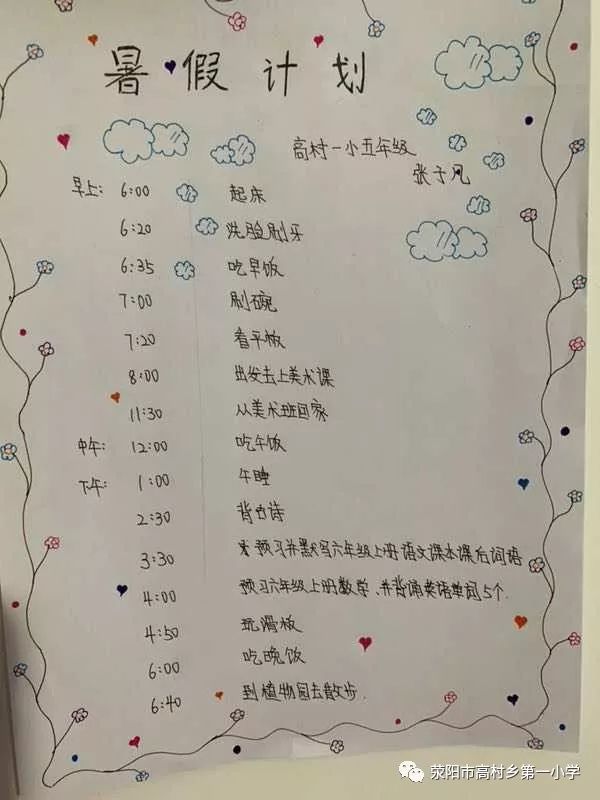 暑假计划
高村一小五年级
张于凡
早上: 6:00 起床
6:20 洗脸刷牙
6:35 吃早饭
7:00 刷碗
7:20 看平板
8:00 出发去上美术课
11:30 从美术班回家
中午: 12:00 吃午饭
下午: 1:00 午睡
2:30 背古诗
3:30 预习并默写六年级上册语文课本课后词语
4:00 预习六年级上册数学、并背诵英语单词5个.
4:50 玩滑板
6:00 吃晚饭
6:40 到植物园去散步.
荥阳市高村乡第一小学